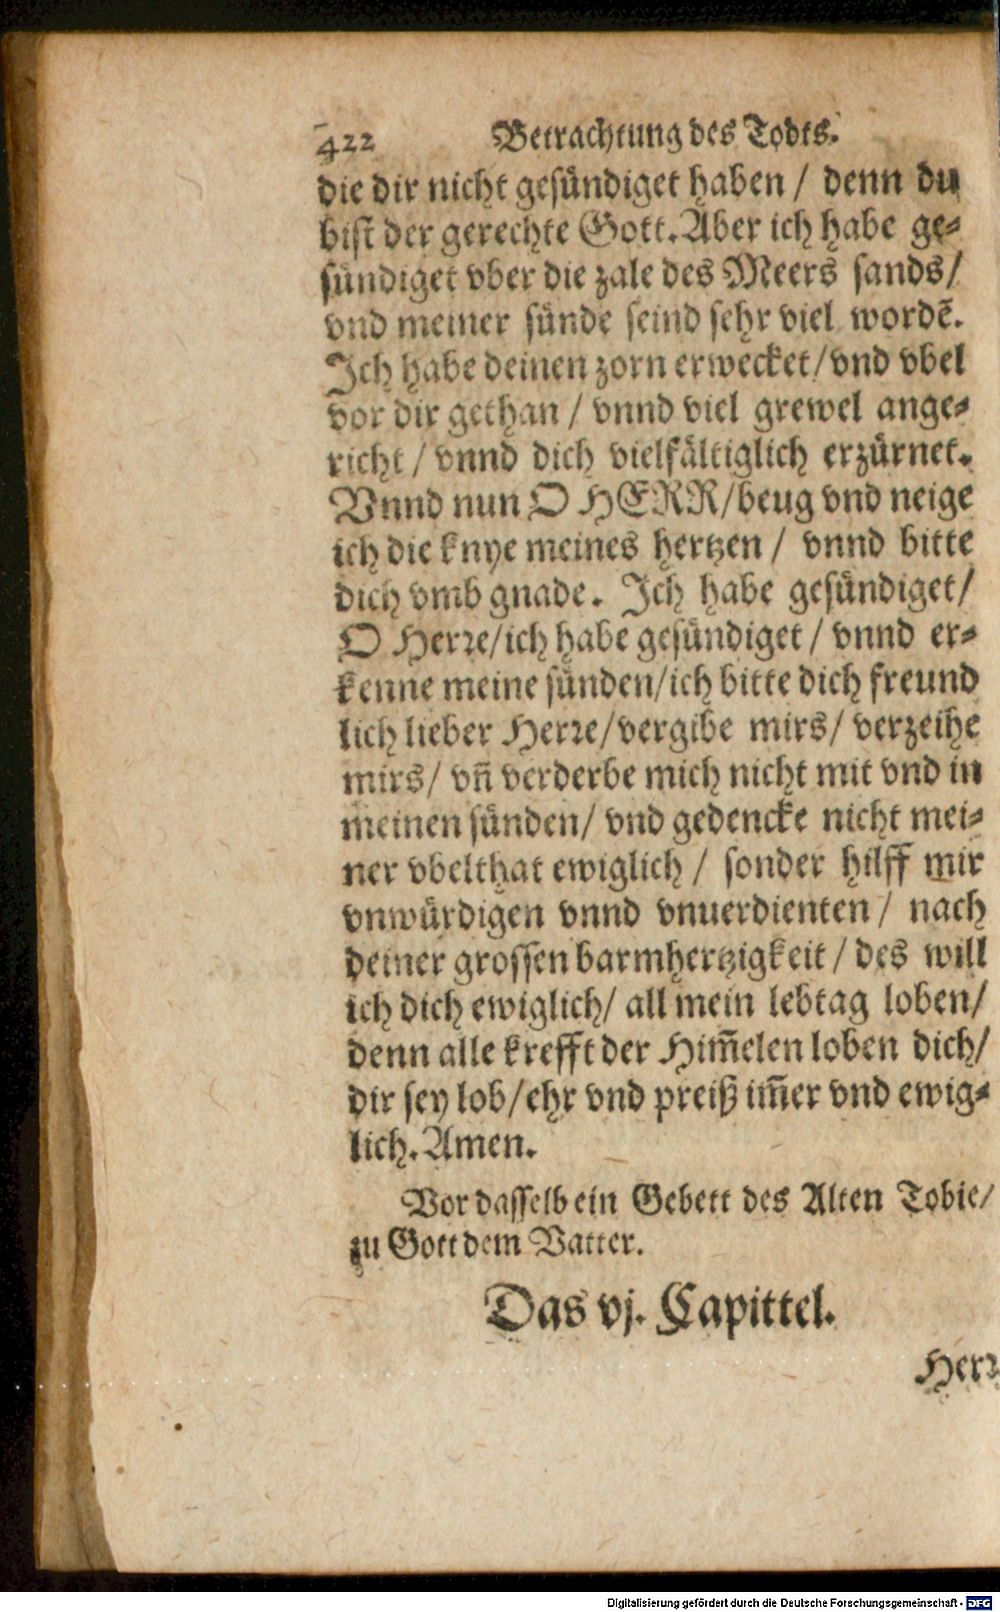 422 Betrachtung des Todts.
die dir nicht gesündiget haben / denn du
bist der gerechte Gott. Aber ich habe ge-
sündiget vber die zale des Meers sands/
vnd meiner sünde seind sehr viel wordẽ.
Ich habe deinen zorn erwecket/vnd vbel
vor dir gethan / vnnd viel grewel ange-
richt / vnnd dich vielfältiglich erzürnet.
Vnnd nun O HERR/beug vnd neige
ich die knye meines hertzen / vnnd bitte
dich vmb gnade. Ich habe gesündiget/
O Herre/ich habe gesündiget / vnnd er-
kenne meine sünden/ich bitte dich freund
lich lieber Herre/vergibe mirs/ verzeihe
mirs/ vñ verderbe mich nicht mit vnd in
meinen sünden/ vnd gedencke nicht mei-
ner vbelthat ewiglich / sonder hilff mir
vnwürdigen vnnd vnuerdienten / nach
deiner grossen barmhertzigkeit / des will
ich dich ewiglich/ all mein lebtag loben/
denn alle krefft der Him̃elen loben dich/
dir sey lob/ehr vnd preiß im̃er vnd ewig-
lich. Amen.
Vor dasselb ein Gebett des Alten Tobie/
zu Gott dem Vatter.
Das vj. Capittel.
Herr
Digitalisierung gefördert durch die Deutsche Forschungsgemeinschaft - DFG